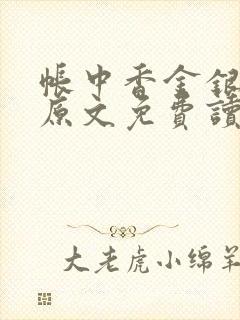 帳中香金銀
原文免費讀
大老虎小绵羊